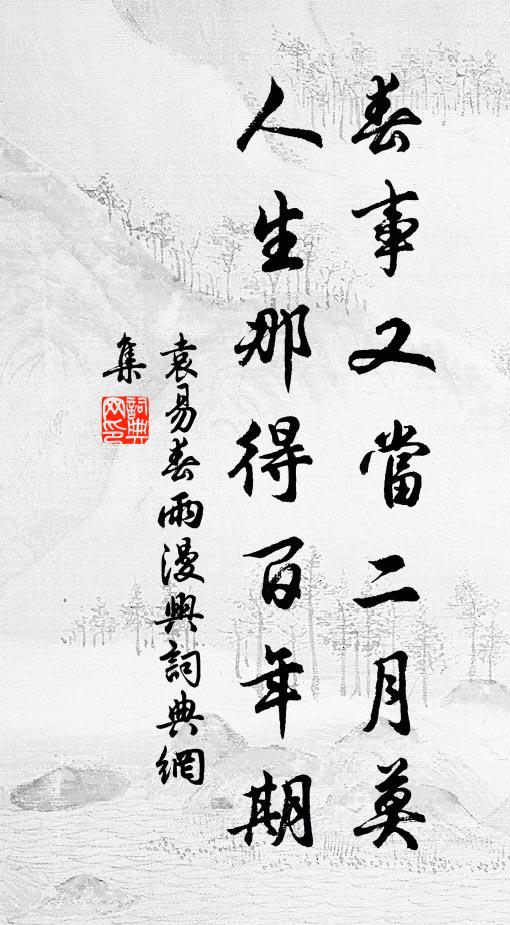 春事又當二月莫
人生那得百年期
袁易春雨漫興詞典網
集
詞典網印